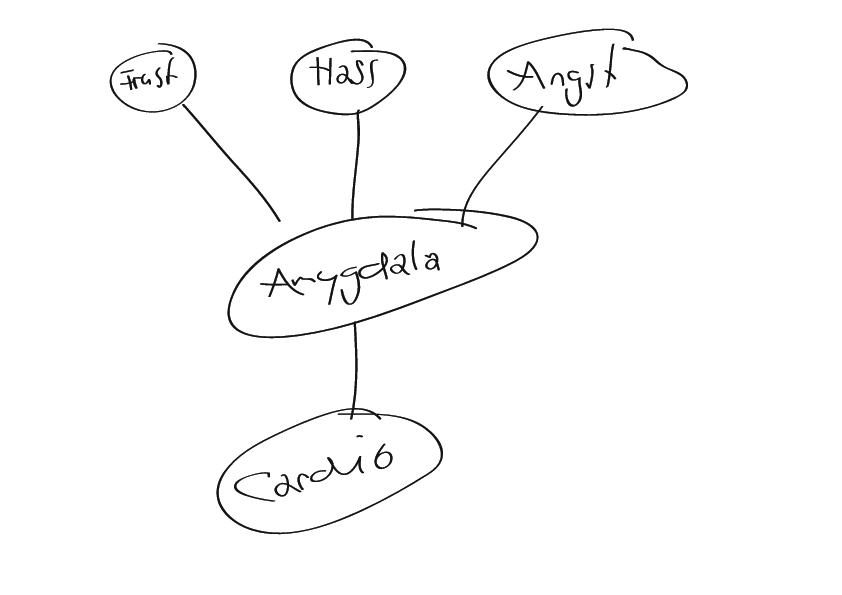 Frust
Hass
Angst
Amygdala
Cardio